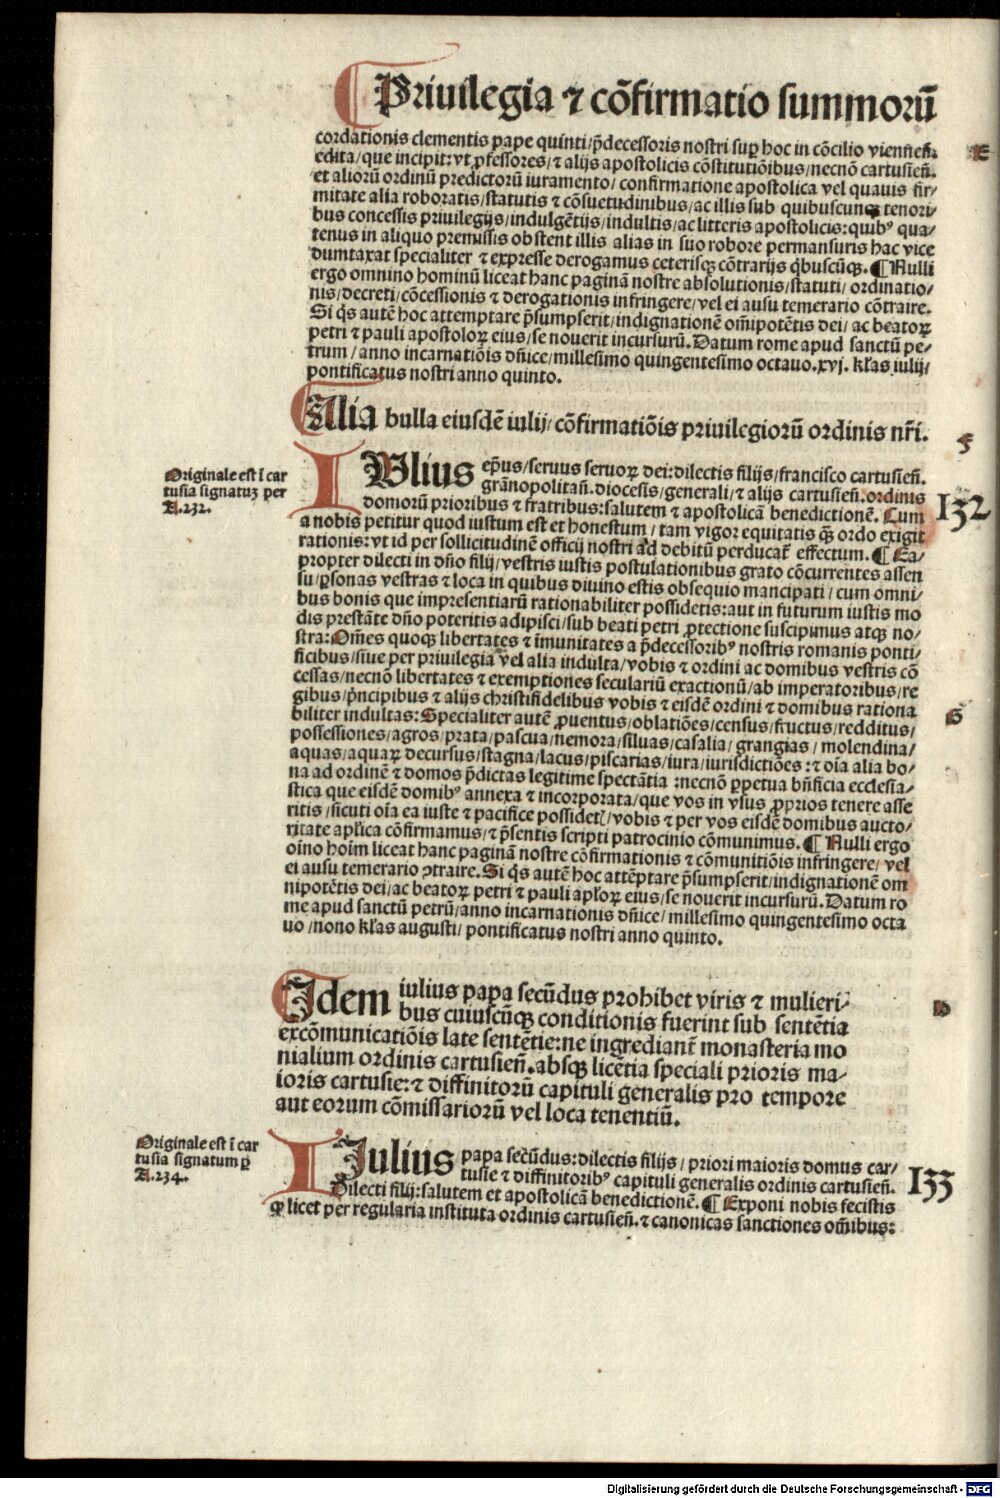 Priuilegia ⁊ cõfirmatio summorũ
cordationis clementis pape quinti/p̃decessoris nostri suꝑ hoc in cõcilio vienneñ.
edita/que incipit:vt ꝓfessores/⁊ alijs apostolicis cõstitutiõibus/necnõ cartusieñ.
et aliorũ ordinũ predictorũ iuramento/ confirmatione apostolica vel quauis fir⸗
mitate alia roboratis/statutis ⁊ cõsuetudinibus/ac illis sub quibuscunqꝫ tenori⸗
bus concessis priuilegijs/indulgẽtijs/indultis/ac litteris apostolicis:quibꝰ qua⸗
tenus in aliquo premissis obstent illis alias in suo robore permansuris hac vice
dumtaxat specialiter ⁊ expresse derogamus ceterisqꝫ cõtrarijs q̇buscũqꝫ. ¶ Nulli
ergo omnino hominũ liceat hanc paginã nostre absolutionis/statuti/ ordinatio⸗
nis/decreti/cõcessionis ⁊ derogationis infringere/vel ei ausu temerario cõtraire.
Si q̇s autẽ hoc attemptare p̃sumpserit/indignationẽ om̃ipotẽtis dei/ ac beatoꝝ
petri ⁊ pauli apostoloꝝ eius/se nouerit incursurũ. Datum rome apud sanctũ pe⸗
trum/anno incarnatiõis dñice/millesimo quingentesimo octauo.xvj. kl̃as iulij/
pontificatus nostri anno quinto.
E
Alia bulla eiusdẽ iulij/cõfirmatiõis priuilegiorũ ordinis nr̃i.
F
Originale est ĩ car
tusia signatuꝫ per
A.232.
IVlius ep̃us/seruus seruoꝝ dei:dilectis filijs/francisco cartusieñ.
grãnopolitañ.diocesis/generali/⁊ alijs cartusieñ.ordinis
domorũ prioribus ⁊ fratribus:salutem ⁊ apostolicã benedictionẽ. Cum
132
a nobis petitur quod iustum est et honestum/ tam vigor equitatis q̃ꝫ ordo exigit
rationis:vt id per sollicitudinẽ officij nostri ad debitũ perducat᷑ effectum. ¶ Ea⸗
propter dilecti in dño filij/vestris iustis postulationibus grato cõcurrentes assen
su/ꝑsonas vestras ⁊ loca in quibus diuino estis obsequio mancipati/ cum omni⸗
bus bonis que impresentiarũ rationabiliter possidetis:aut in futurum iustis mo
dis prestãte dño poteritis adipisci/sub beati petri ꝓtectione suscipimus atqꝫ no⸗
stra:Om̃es quoqꝫ libertates ⁊ ĩmunitates a p̃decessoribꝰ nostris romanis ponti⸗
ficibus/siue per priuilegia vel alia indulta/vobis ⁊ ordini ac domibus vestris cõ
cessas/necnõ libertates ⁊ exemptiones seculariũ exactionũ/ab imperatoribus/re
gibus/p̃ncipibus ⁊ alijs christifidelibus vobis ⁊ eisdẽ ordini ⁊ domibus rationa
biliter indultas:Specialiter autẽ ꝓuentus/oblatiões/census/fructus/redditus/
G
possessiones/agros/prata/pascua/nemora/siluas/casalia/ grangias/ molendina/
aquas/aquaꝝ decursus/stagna/lacus/piscarias/iura/iurisdictiões:⁊ oĩa alia bo⸗
na ad ordinẽ ⁊ domos p̃dictas legitime spectãtia:necnõ ꝑpetua bñficia ecclesia⸗
stica que eisdẽ domibꝰ annexa ⁊ incorporata/que vos in vsus ꝓprios tenere asse
ritis/sicuti oĩa ea iuste ⁊ pacifice possidetꝭ/vobis ⁊ per vos eisdẽ domibus aucto⸗
ritate apl̃ica cõfirmamus/⁊ p̃sentis scripti patrocinio cõmunimus. ¶ Nulli ergo
oĩno hoĩm liceat hanc paginã nostre cõfirmationis ⁊ cõmunitiõis infringere/ vel
ei ausu temerario ꝯtraire. Si q̇s autẽ hoc attẽptare p̃sumpserit/indignationẽ om
nipotẽtis dei/ac beatoꝝ petri ⁊ pauli apl̃oꝝ eius/se nouerit incursurũ. Datum ro
me apud sanctũ petrũ/anno incarnationis dñice/ millesimo quingentesimo octa
uo/nono kl̃as augusti/ pontificatus nostri anno quinto.
Idem iulius papa secũdus prohibet viris ⁊ mulieri⸗
bus cuiuscũqꝫ conditionis fuerint sub sentẽtia
H
excõmunicatiõis late sentẽtie:ne ingrediant᷑ monasteria mo
nialium ordinis cartusieñ.absqꝫ licẽtia speciali prioris ma⸗
ioris cartusie:⁊ diffinitorũ capituli generalis pro tempore
aut eorum cõmissariorũ vel loca tenentiũ.
Originale est ĩ car
tusia signatum ꝑ
A.234.
Julius papa secũdus:dilectis filijs/ priori maioris domus car⸗
tusie ⁊ diffinitoribꝰ capituli generalis ordinis cartusieñ.
133
Dilecti filij:salutem et apostolicã benedictionẽ. ¶ Exponi nobis fecistis
ꝙ licet per regularia instituta ordinis cartusieñ.⁊ canonicas sanctiones om̃ibus:
Digitalisierung gefördert durch die Deutsche Forschungsgemeinschaft - DFG